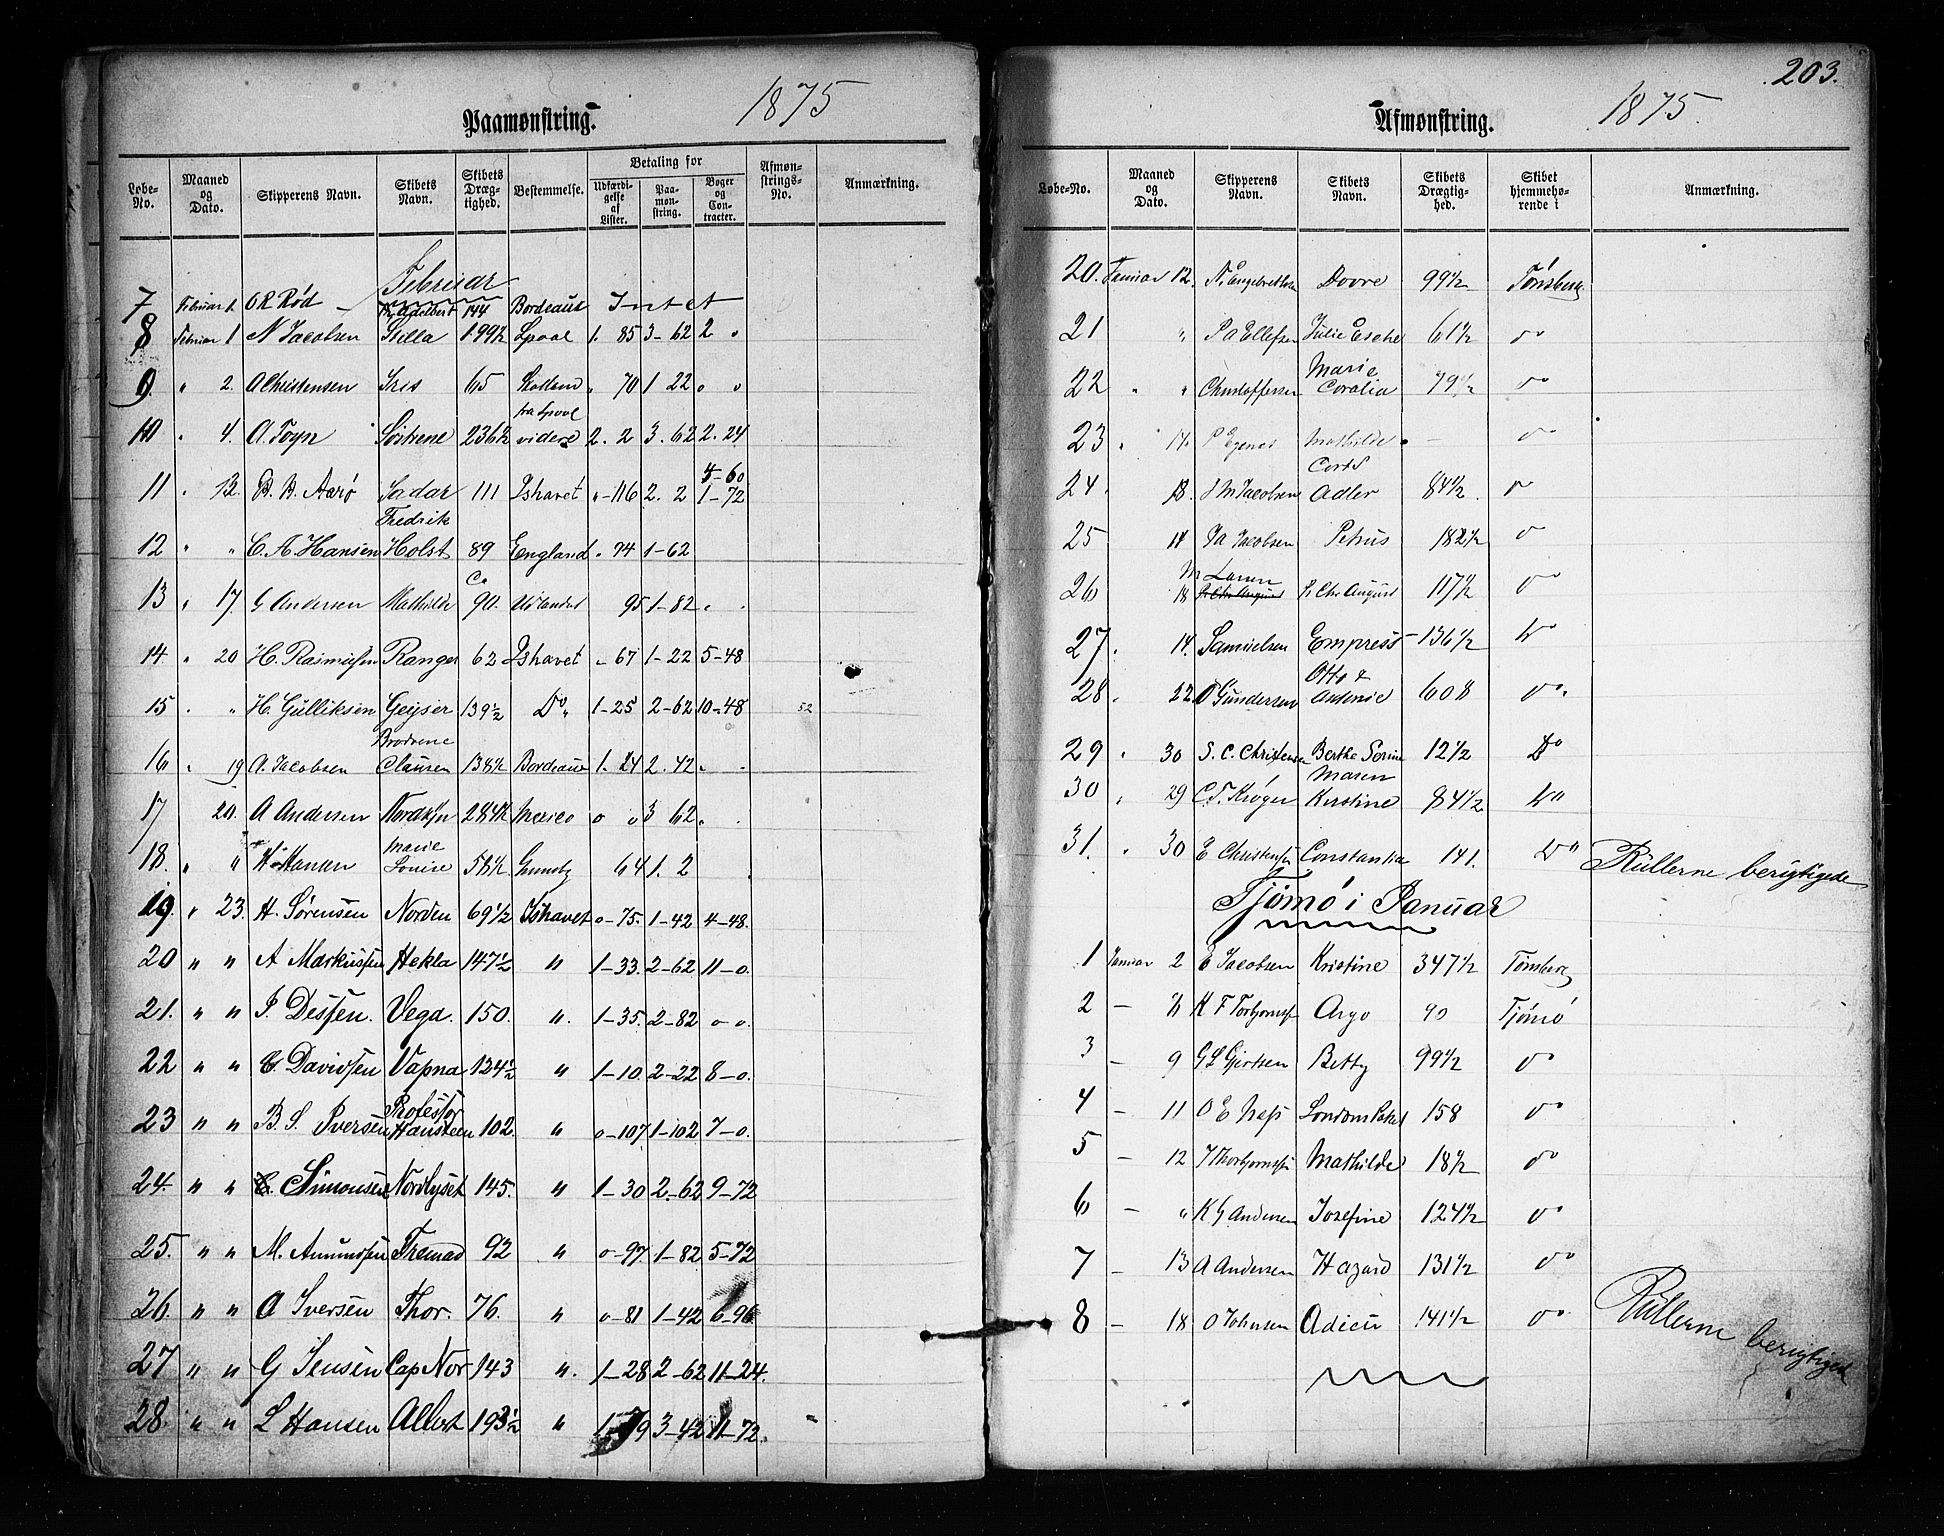 Paamønstring.
1875
Løbe-No. Maaned og Dato. Skipperens Navn. Skibets Navn. Skibets Drægtighed. Bestemmelse. Betaling for Udfærdigelse af Lister. Paamønstring. Bøger og Contracter. Afmønstrings-No. Anmærkning.
Februar
7 Februar 1. O R Rød Adelbert 144 Bordeaux Intet
8 Februar 1 N Jacobsen Stella 199½ Lpool 1. 85 3-62 2 "
9. " 2. A Christensen Iris 65 " 70 1 22 " "
fra Lpool
10 " 4. A. Foyn Søstrene 236½ videre 2. 2 3. 62 2. 24
4-60
11 " 12. B. B. Aarø Jadar 111 Ishavet "-116 2. 2 1-72
Fredrik
12 " " C. A. Hansen Holst 89 England " 74 1-62
Ca
13 " 17 G Andersen Mathilde 90. Udlandet 95 1-82 " "
14 " 20 H. Rasmussen Ranger 62 Ishavet "-67 1-22 5-48
15 " " H. Gulliksen Geyser 139½ Do " 1-25 2-62 10-48 52
Brødrene
16 " 19 A. Jacobsen Clausen 138½ Bordeaux 1. 24 2. 42 " "
17 20. A Andersen Nordkyn 284½ Mexico o o 3 62 " "
Marie
18. " " H Hansen Louise 58½ Grimsby 64 1. 2
19. " 23. H. Sørensen Norden 69½ Ishavet 0-75. 1-42 4-48.
20 " " A Markussen Hekla 147½ " 1-33. 2-62 11-0.
21. " " J. Dessen. Vega. 150. ". 1-35. 2-82 0-0.
22 " " E. Davidsen Vapna 124½ " 1-10. 2-22 8-0.
Professor
23 " " B. S. Iversen Hansteen 102. " 0-107 1-102 7-0.
24. " " C. Simonsen Nordlyset 145. " 1-30 2-62 9-72
25. " " M. Amundsen Fremad 92 " 0-97. 1-82 5-72
26. " " A Iversen Thor. 76. " 0-81 1-42 6-96
27 " " G Jensen Cap Nor 143 ". 1-28 2-62 11-24.
28. " " L Hansen Albert 193½ " 1-79 3-42 11-72.
203.
Afmønstring.
1875.
Løbe-No. Maaned og Dato. Skipperens Navn. Skibets Navn. Skibets Drægtighed. Skibet hjemmehørende i Anmærkning.
20. Januar 12. N. Engebrethsen Dovre 99½ Tønsberg
21 " P A Ellefsen Julie Esche 61½ Do
Marie
22 " " Christoffersen Coralia 79½ Do
23 " 14. P Egenes Mathilde - Do
Cort
24. 18. J M Jacobsen Adler 84½. Do
25 14 Ja Jacobsen Petrus 182½ Do
M Larsen
26 18 Pr Chr August Pr Chr August 117½ Do
27. " 14. Samuelsen Empress 136½ Do
Otto &
28 " 22. O Gundersen Antonie 608 Do.
29 " 30 S. C. Christensen Berthe Sorine 12½ Do
Maren
30 " 29 C. F. Krøger Kirstine 84½ Do
31. " 30 E Christensen Constantia 141. Do Rullerne berigtigede
Tjømø i Januar
1 Januar 2 E Jacobsen Kristine 347½ Tønsberg
2 - 8 K F Torbjørnsen Argo 90 Tjømø
3 - 9 G L Gjertsen Betty 99½ Do
4 - 11 O E Næss London Paket 158 Do
5 - 12 J Thorbjørnsen Mathilde 18½ Do
6 - " K G Andersen Josefine 124½ Do
7 - 13 A Andersen Hazard 131½ Do
8 - 18 O Johnsen Adieu 141½ Do Rullerne berigtiget